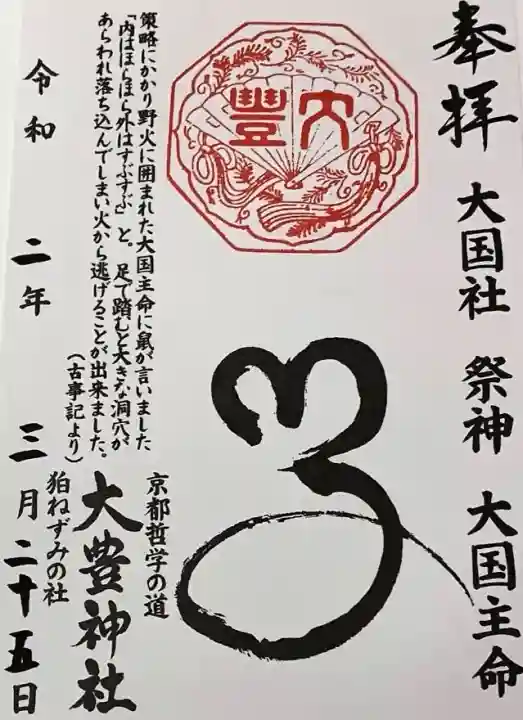 奉拝
大国社 祭神 大国主命
大豐
策略にかかり野火に囲まれた大国主命に鼠が言いました
「内はほらほら外はすぶすぶ」と。足で踏むと大きな洞穴が
あらわれ落ち込んでしまい火から逃げることが出来ました。
（古事記より）
京都哲学の道
大豊神社
狛ねずみの社
令和 二年 三月二十五日